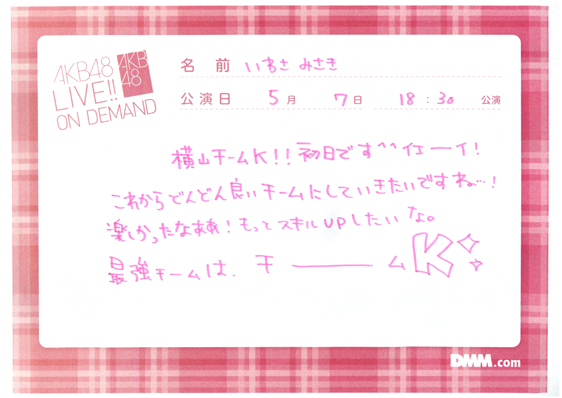 AKB48
LIVE!!
ON DEMAND
AKB
48
名 前 いわさ みさき
公演日 5月 7日 18:30 公演
横山チームK!!初日です^^イエーイ!
これからどんどん良いチームにしていきたいですね…!
楽しかったなああ!もっとスキルUPしたいな。
最強チームは、チ―――ムK
DMM.com